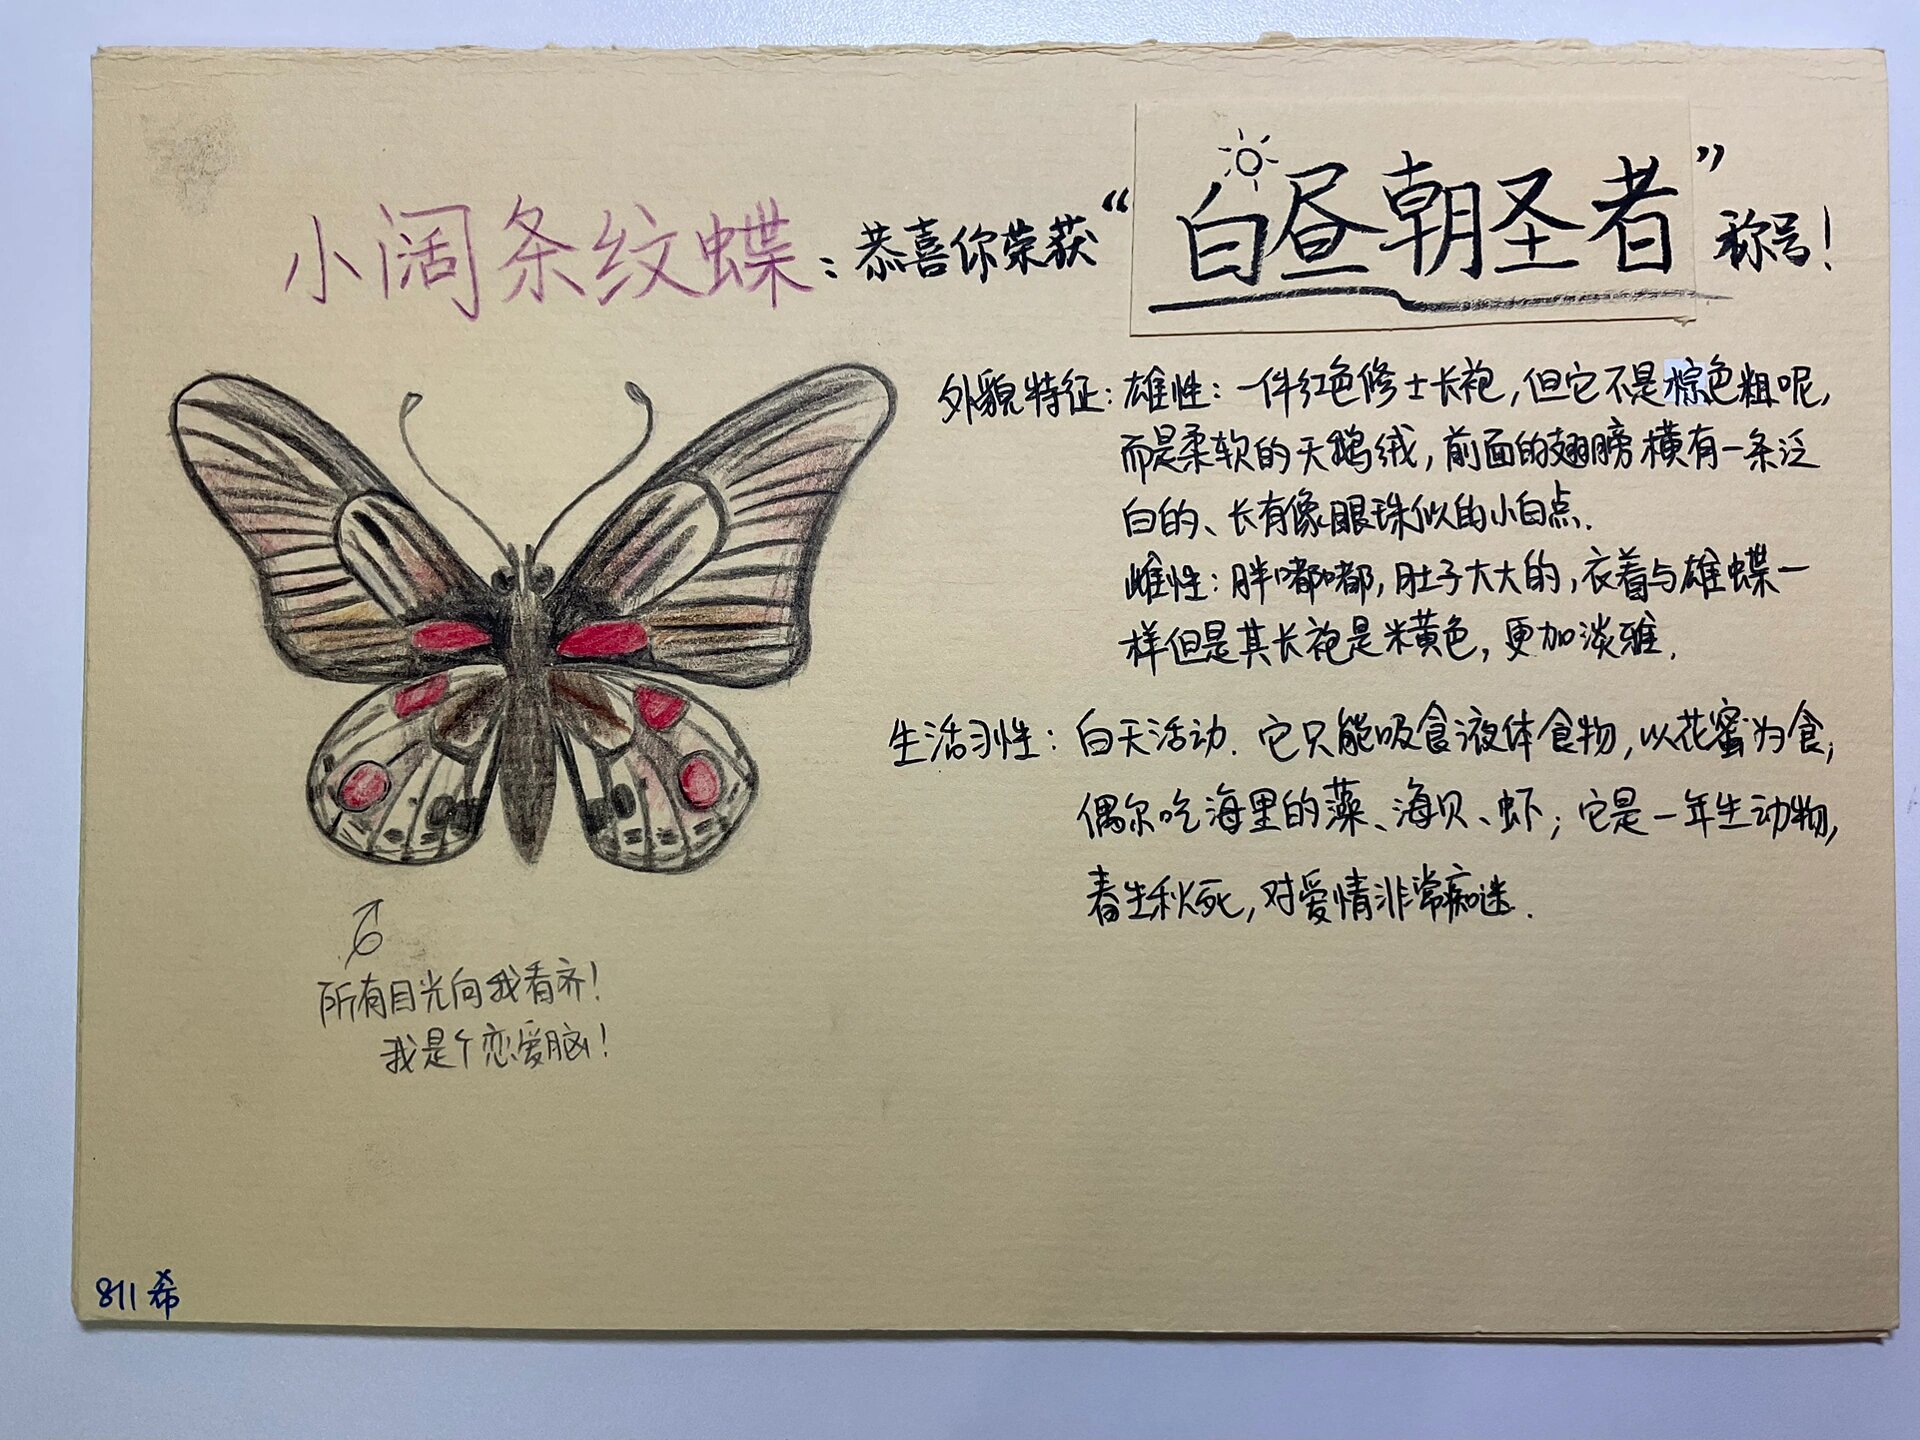 小阔条纹蝶：恭喜你荣获“白昼朝圣者”称号！
外貌特征：雄性：一件红色修士长袍，但它不是棕色粗呢，
而是柔软的天鹅绒，前面的翅膀横有一条泛
白的、长有像眼珠似的小白点.
雌性：胖嘟嘟，肚子大大的，衣着与雄蝶一
样但是其长袍是米黄色，更加淡雅.
生活习性：白天活动.它只能吸食液体食物，以花蜜为食，
偶尔吃海里的藻、海贝、虾；它是一年生动物，
春生秋死，对爱情非常痴迷.
所有目光向我看齐！
我是个恋爱脑！
811 希